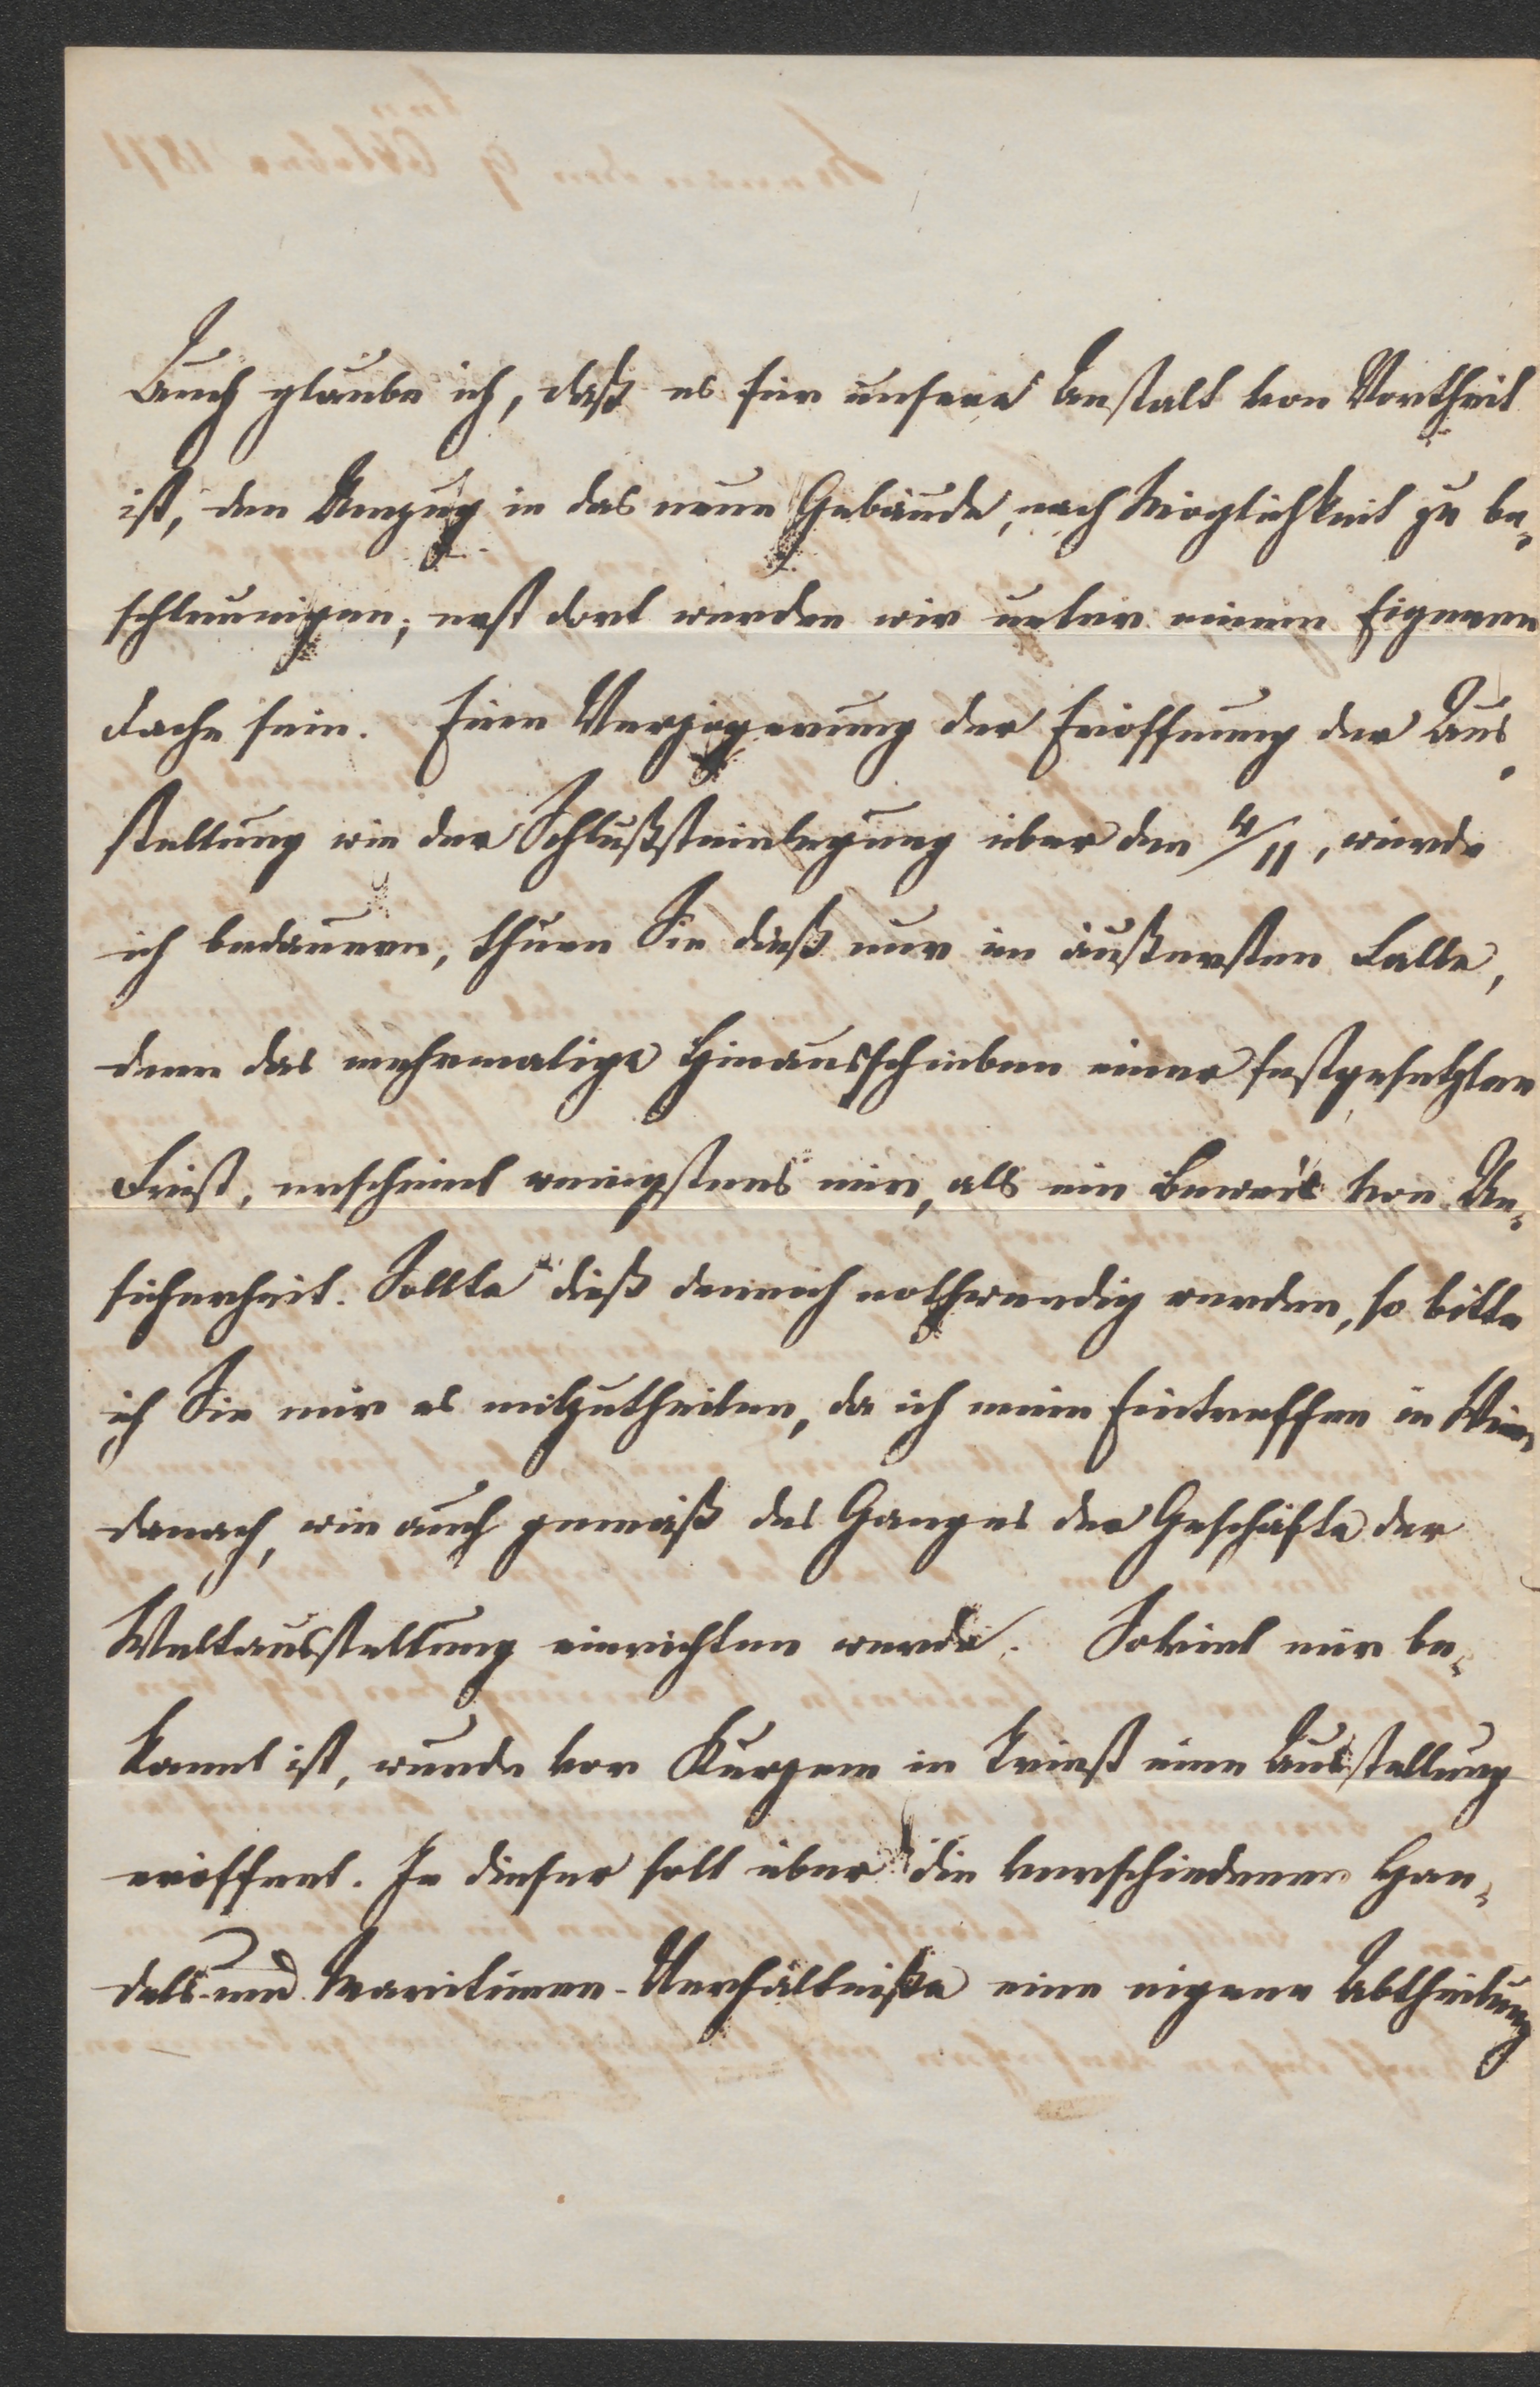 Auch glaube ich, daß es für unsere Anstalt von Vortheil
ist, den Umzug in das neue Gebäude, nach Möglichkeit zu be-
schleunigen; erst dort werden wir unter einem Eigenen
Dache sein. Eine Verzögerung der Eröffnung der Aus-
stellung wie der Schlußsteinlegung über den 4/11, würde
ich bedauern, thuen Sie dieß nur im äußersten Falle,
denn das mehrmalige Hinausschieben einer festgesetzten
Frist, erscheint wenigstens mir, als ein Beweis von Un-
sicherheit. Sollte dieß dennoch nothwendig werden, so bitte
ich Sie mir es mitzutheilen, da ich mein Eintreffen in Wien
danach, wie auch gemäß des Ganges der Geschäfte der
Weltausstellung einrichten werde. Soviel mir be-
kannt ist, wurde vor Kurzem in Triest eine Ausstellung
eröffnet. In dieser soll über die verschiedenen Han-
dels- und Maritimen-Verhältniße eine eigene Abtheilung